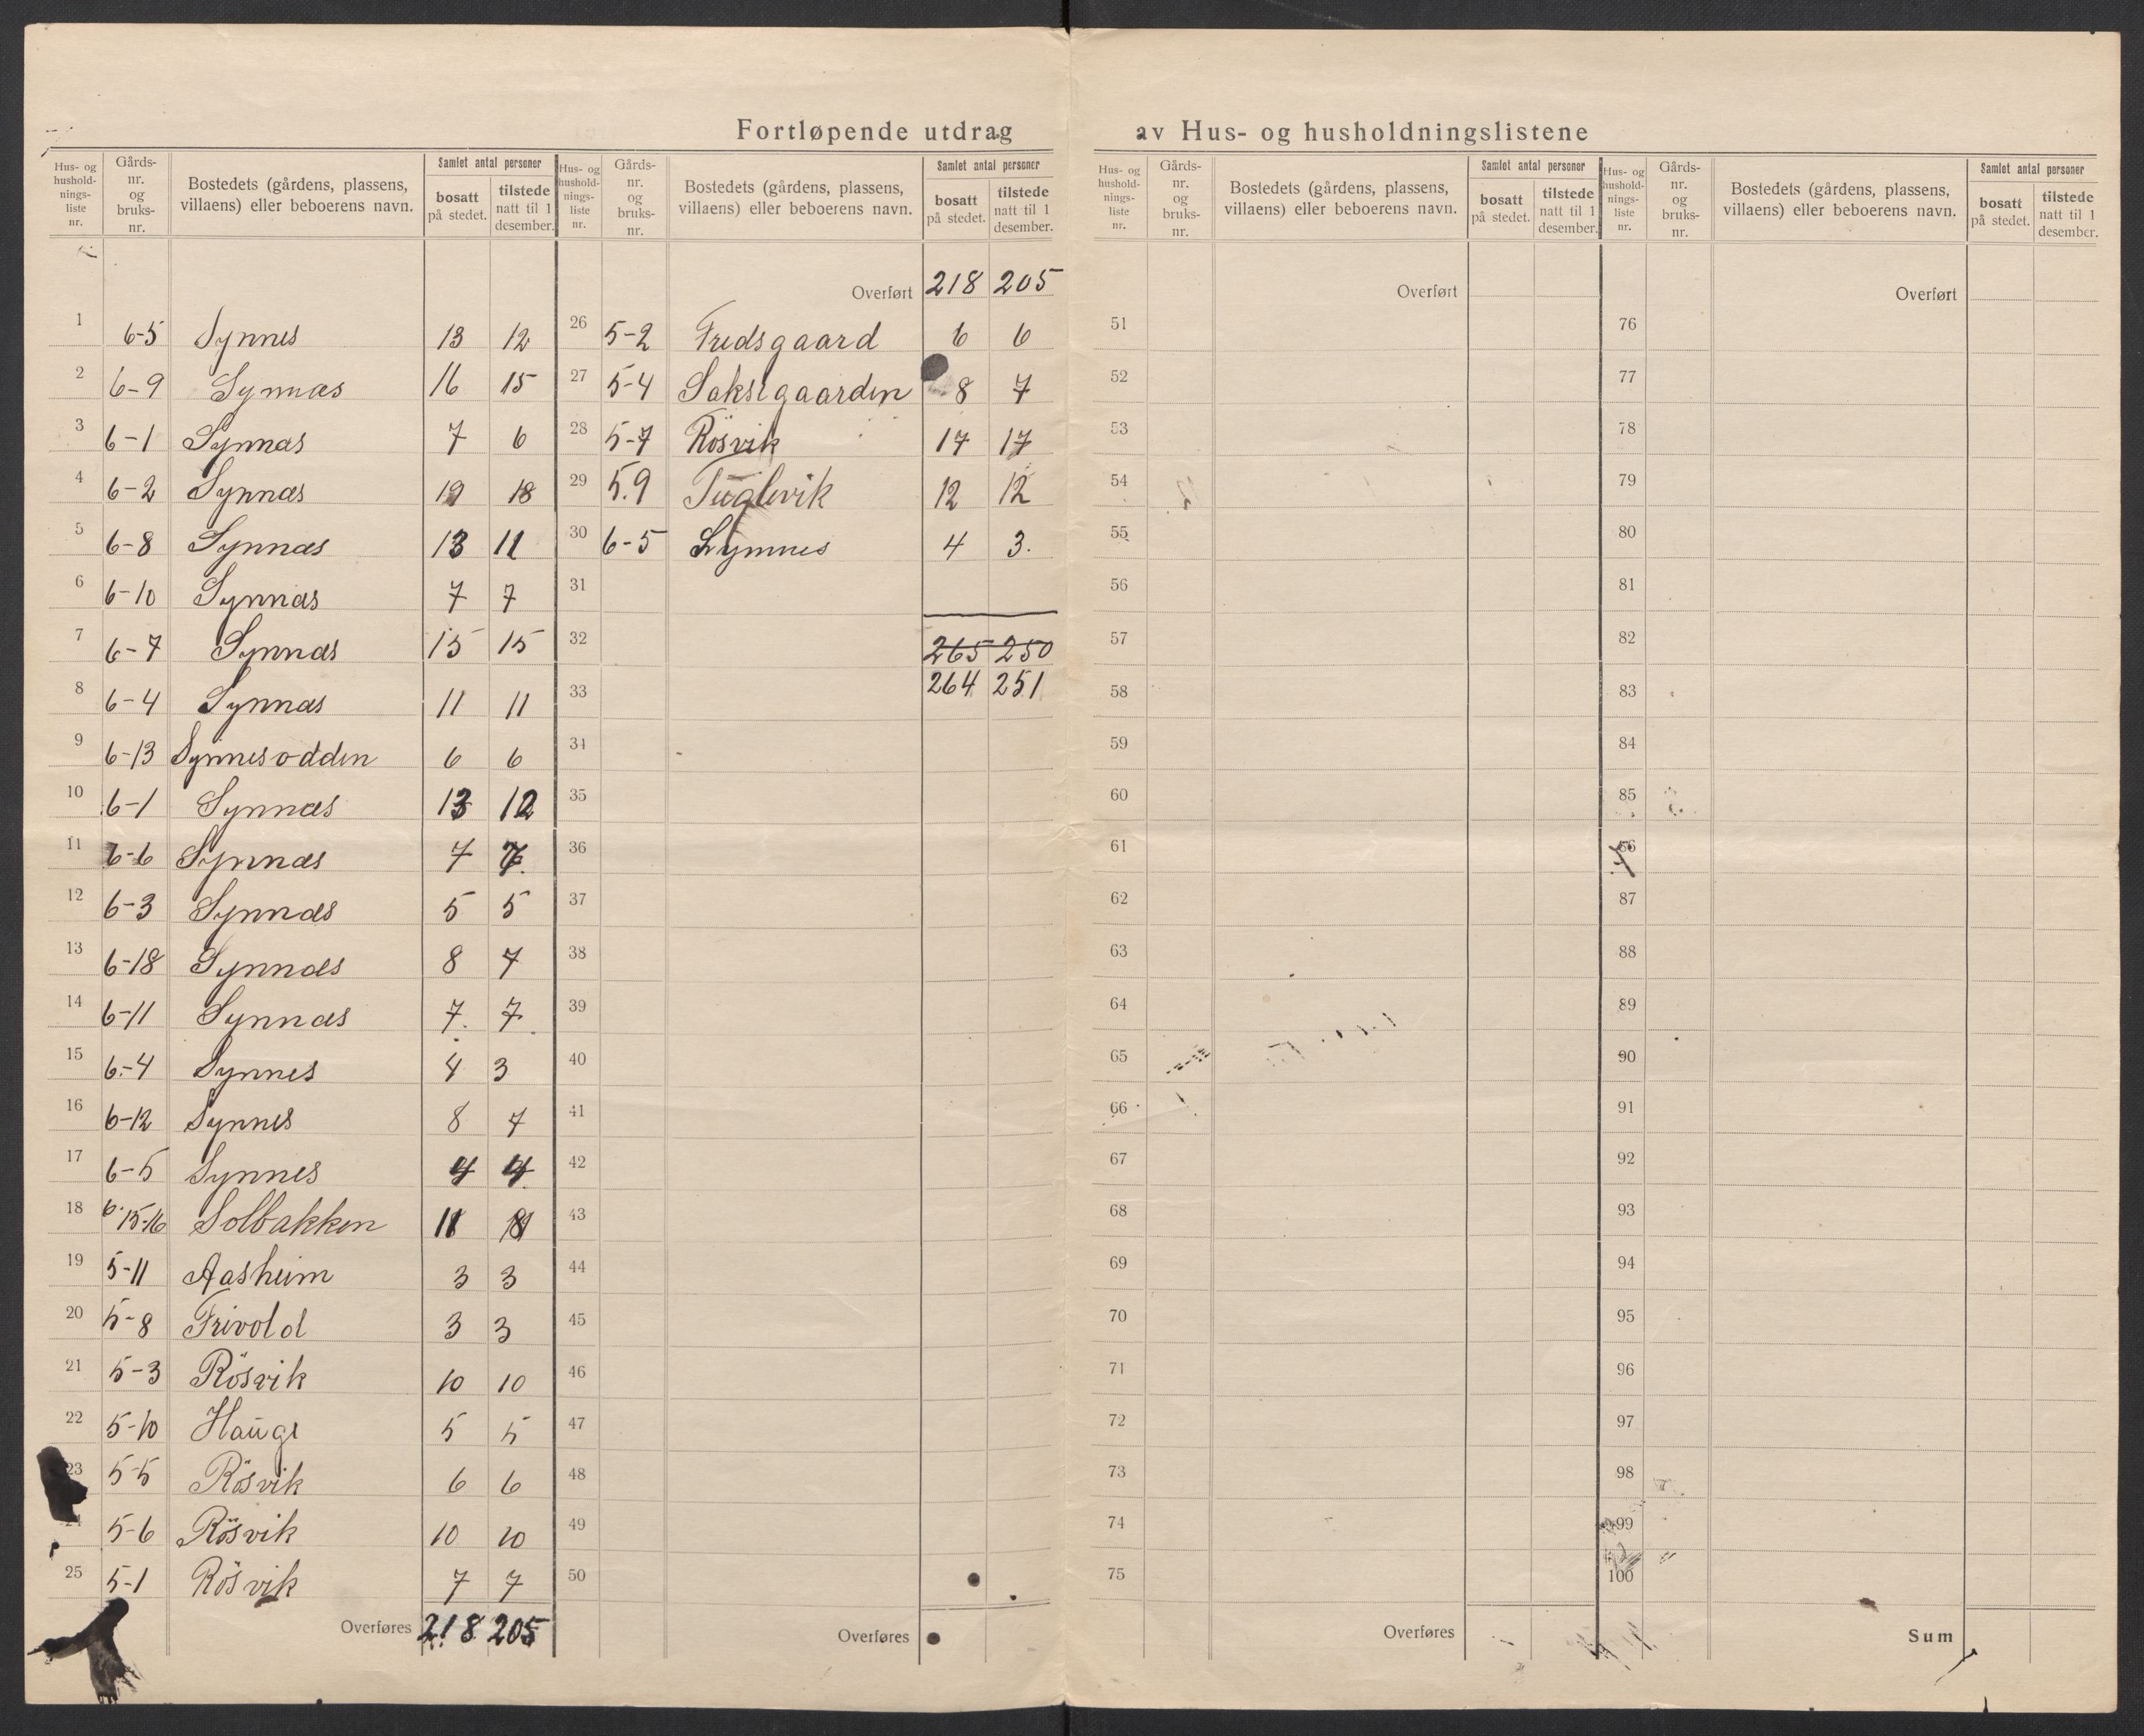 Fortløpende utdrag av Hus- og husholdningslistene
Hus- og husholdnings-liste nr. | Gårds-nr. og bruks-nr. | Bostedets (gårdens, plassens, villaens) eller beboerens navn. | Samlet antal personer | bosatt på stedet. | tilstede natt til 1 desember.
1 6-5 Synnes 13 12
2 6-9 Synnæs 16 15
3 6-1 Synnæs 7 6
4 6-2 Synnæs 19 18
5 6-8 Synnæs 13 11
6 6-10 Synnæs 7 7
7 6-7 Synnæs 15 15
8 6-4 Synnæs 11 11
9 6-13 Synnesodden 6 6
10 6-1 Synnæs 13 12
11 6-6 Synnæs 7 7
12 6-3 Synnæs 5 5
13 6-18 Synnæs 8 7
14 6-11 Synnæs 7 7
15 6-4 Synnes 4 3
16 6-12 Synnes 8 7
17 6-5 Synnes 4 4
18 6-15-16 Solbakken 11
19 5-11 Aasheim 3 3
20 5-8 Frivold 3 3
21 5-3 Rösvik 10 10
22 5-10 Hauge 5 5
23 5-5 Rösvik 6 6
24 5-6 Rösvik 10 10
25 5-1 Rösvik 7 7
Overføres 218 205
Hus- og husholdnings-liste nr. | Gårds-nr. og bruks-nr. | Bostedets (gårdens, plassens, villaens) eller beboerens navn. | Samlet antal personer | bosatt på stedet. | tilstede natt til 1 desember.
Overført 218 205
26 5-2 Fredsgaard 6 6
27 5-4 Saksegaarden 8 7
28 5-7 Rösvik 17 17
29 5.9 Fuglevik 12 12
30 6-5 Synnes 4 3.
31
32 265 250
33 264 251
34
35
36
37
38
39
40
41
42
43
44
45
46
47
48
49
50
Overføres
Hus- og husholdnings-liste nr. | Gårds-nr. og bruks-nr. | Bostedets (gårdens, plassens, villaens) eller beboerens navn. | Samlet antal personer | bosatt på stedet. | tilstede natt til 1 desember.
Overført
51
52
53
54
55
56
57
58
59
60
61
62
63
64
65
66
67
68
69
70
71
72
73
74
75
Overføres
Hus- og husholdnings-liste nr. | Gårds-nr. og bruks-nr. | Bostedets (gårdens, plassens, villaens) eller beboerens navn. | Samlet antal personer | bosatt på stedet. | tilstede natt til 1 desember.
Overført
76
77
78
79
80
81
82
83
84
85
86
87
88
89
90
91
92
93
94
95
96
97
98
99
100
Sum